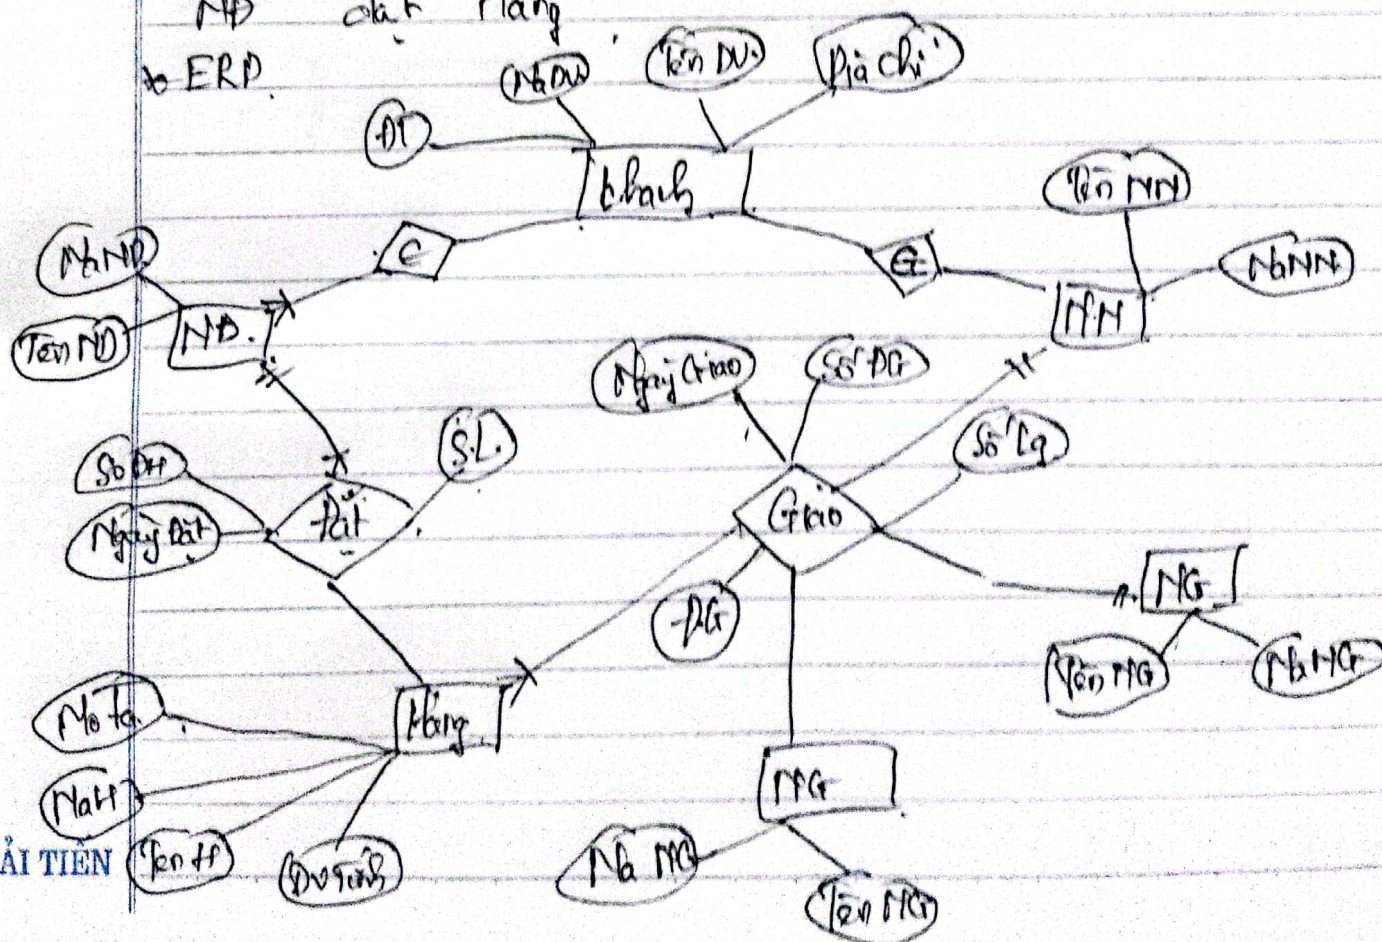 NĐ đặt Hàng.
ERD.
MaDV
Tên DV
Địa chỉ
ĐT
khach
Tên NN
MaNN
C
G
MaNĐ
Tên NĐ
NĐ.
N.N
Ngày Giao
Số ĐG
Số Lg
S.L.
Số ĐH
Ngày Đặt
Đặt
Giao
ĐG
NG
Tên NG
Ma NG
Mo Ta
Hàng
MaH
Tên H
Đv Tính
NG
Mã NG
Tên NG
ẢI TIẾN